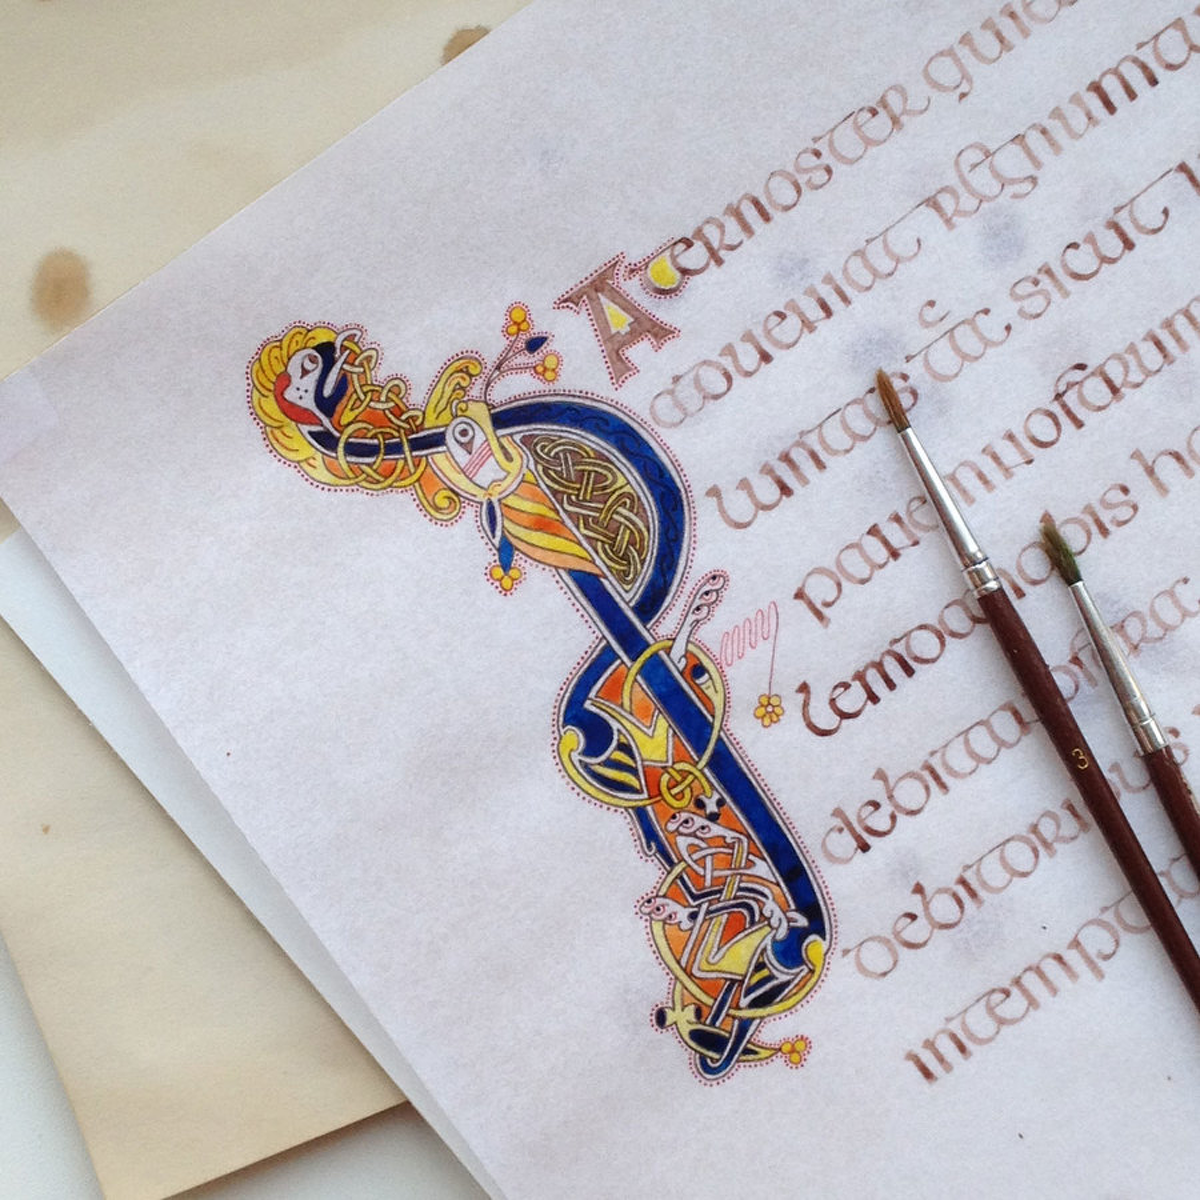 PATERNOSTER quie
adueniat regnum
luntas sicut
panem nostrum
lemda nobis ho
debita nostra
debitoribus
intempta
3